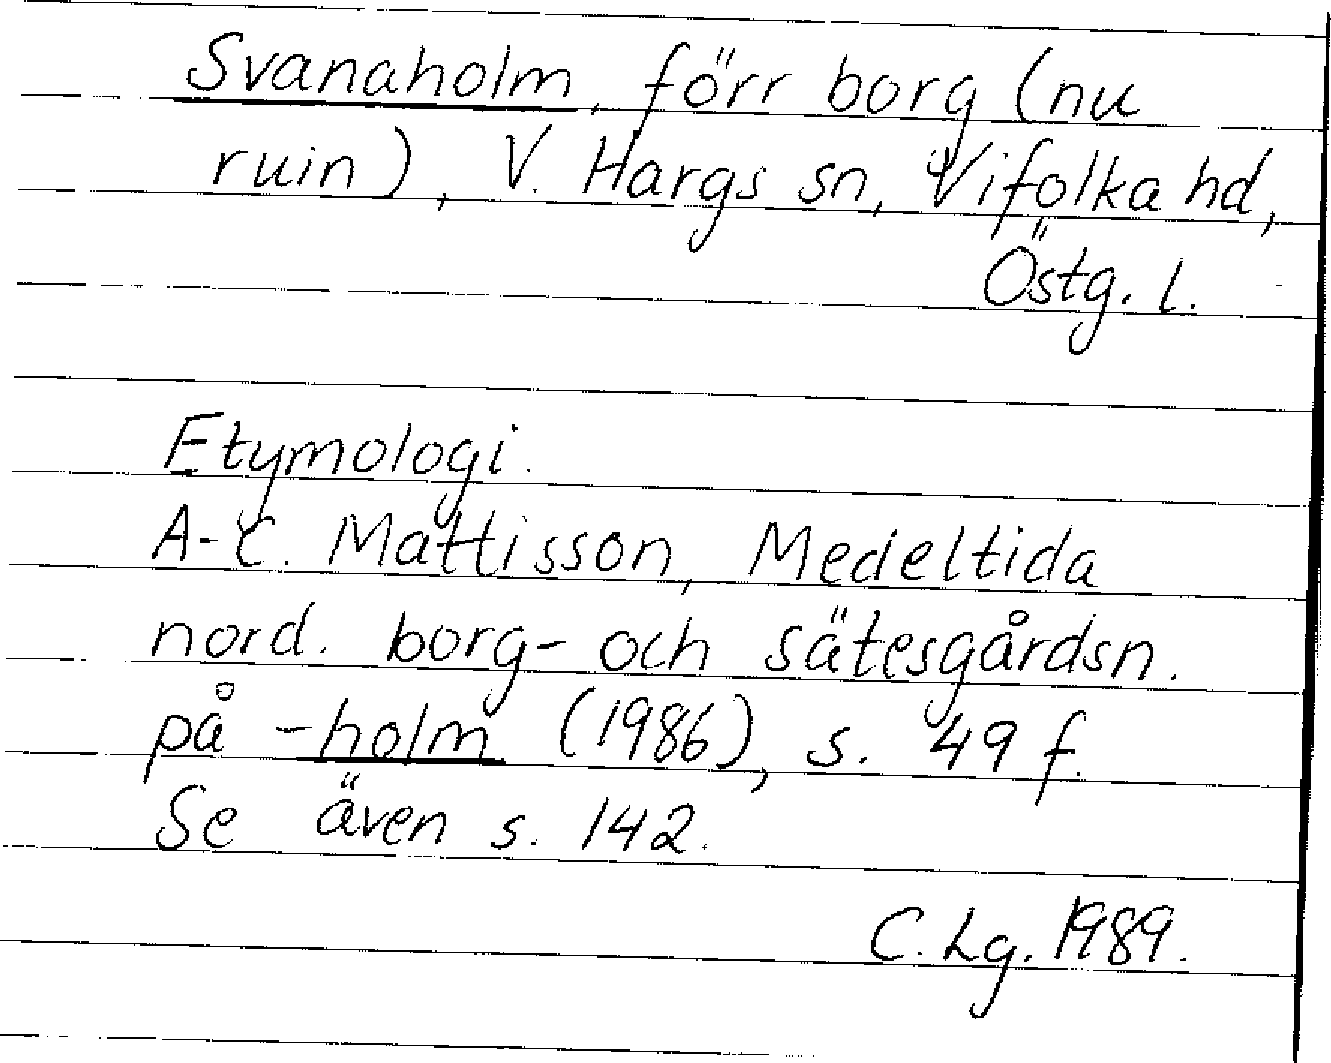 Svanaholm, förr borg (nu
ruin), V. Hargs sn, Vifolka hd,
Östg. l.
Etymologi.
A-C. Mattisson, Medeltida
nord. borg- och sätesgårdsn.
på -holm (1986), s. 49 f.
Se även s. 142.
C. Lg. 1989.